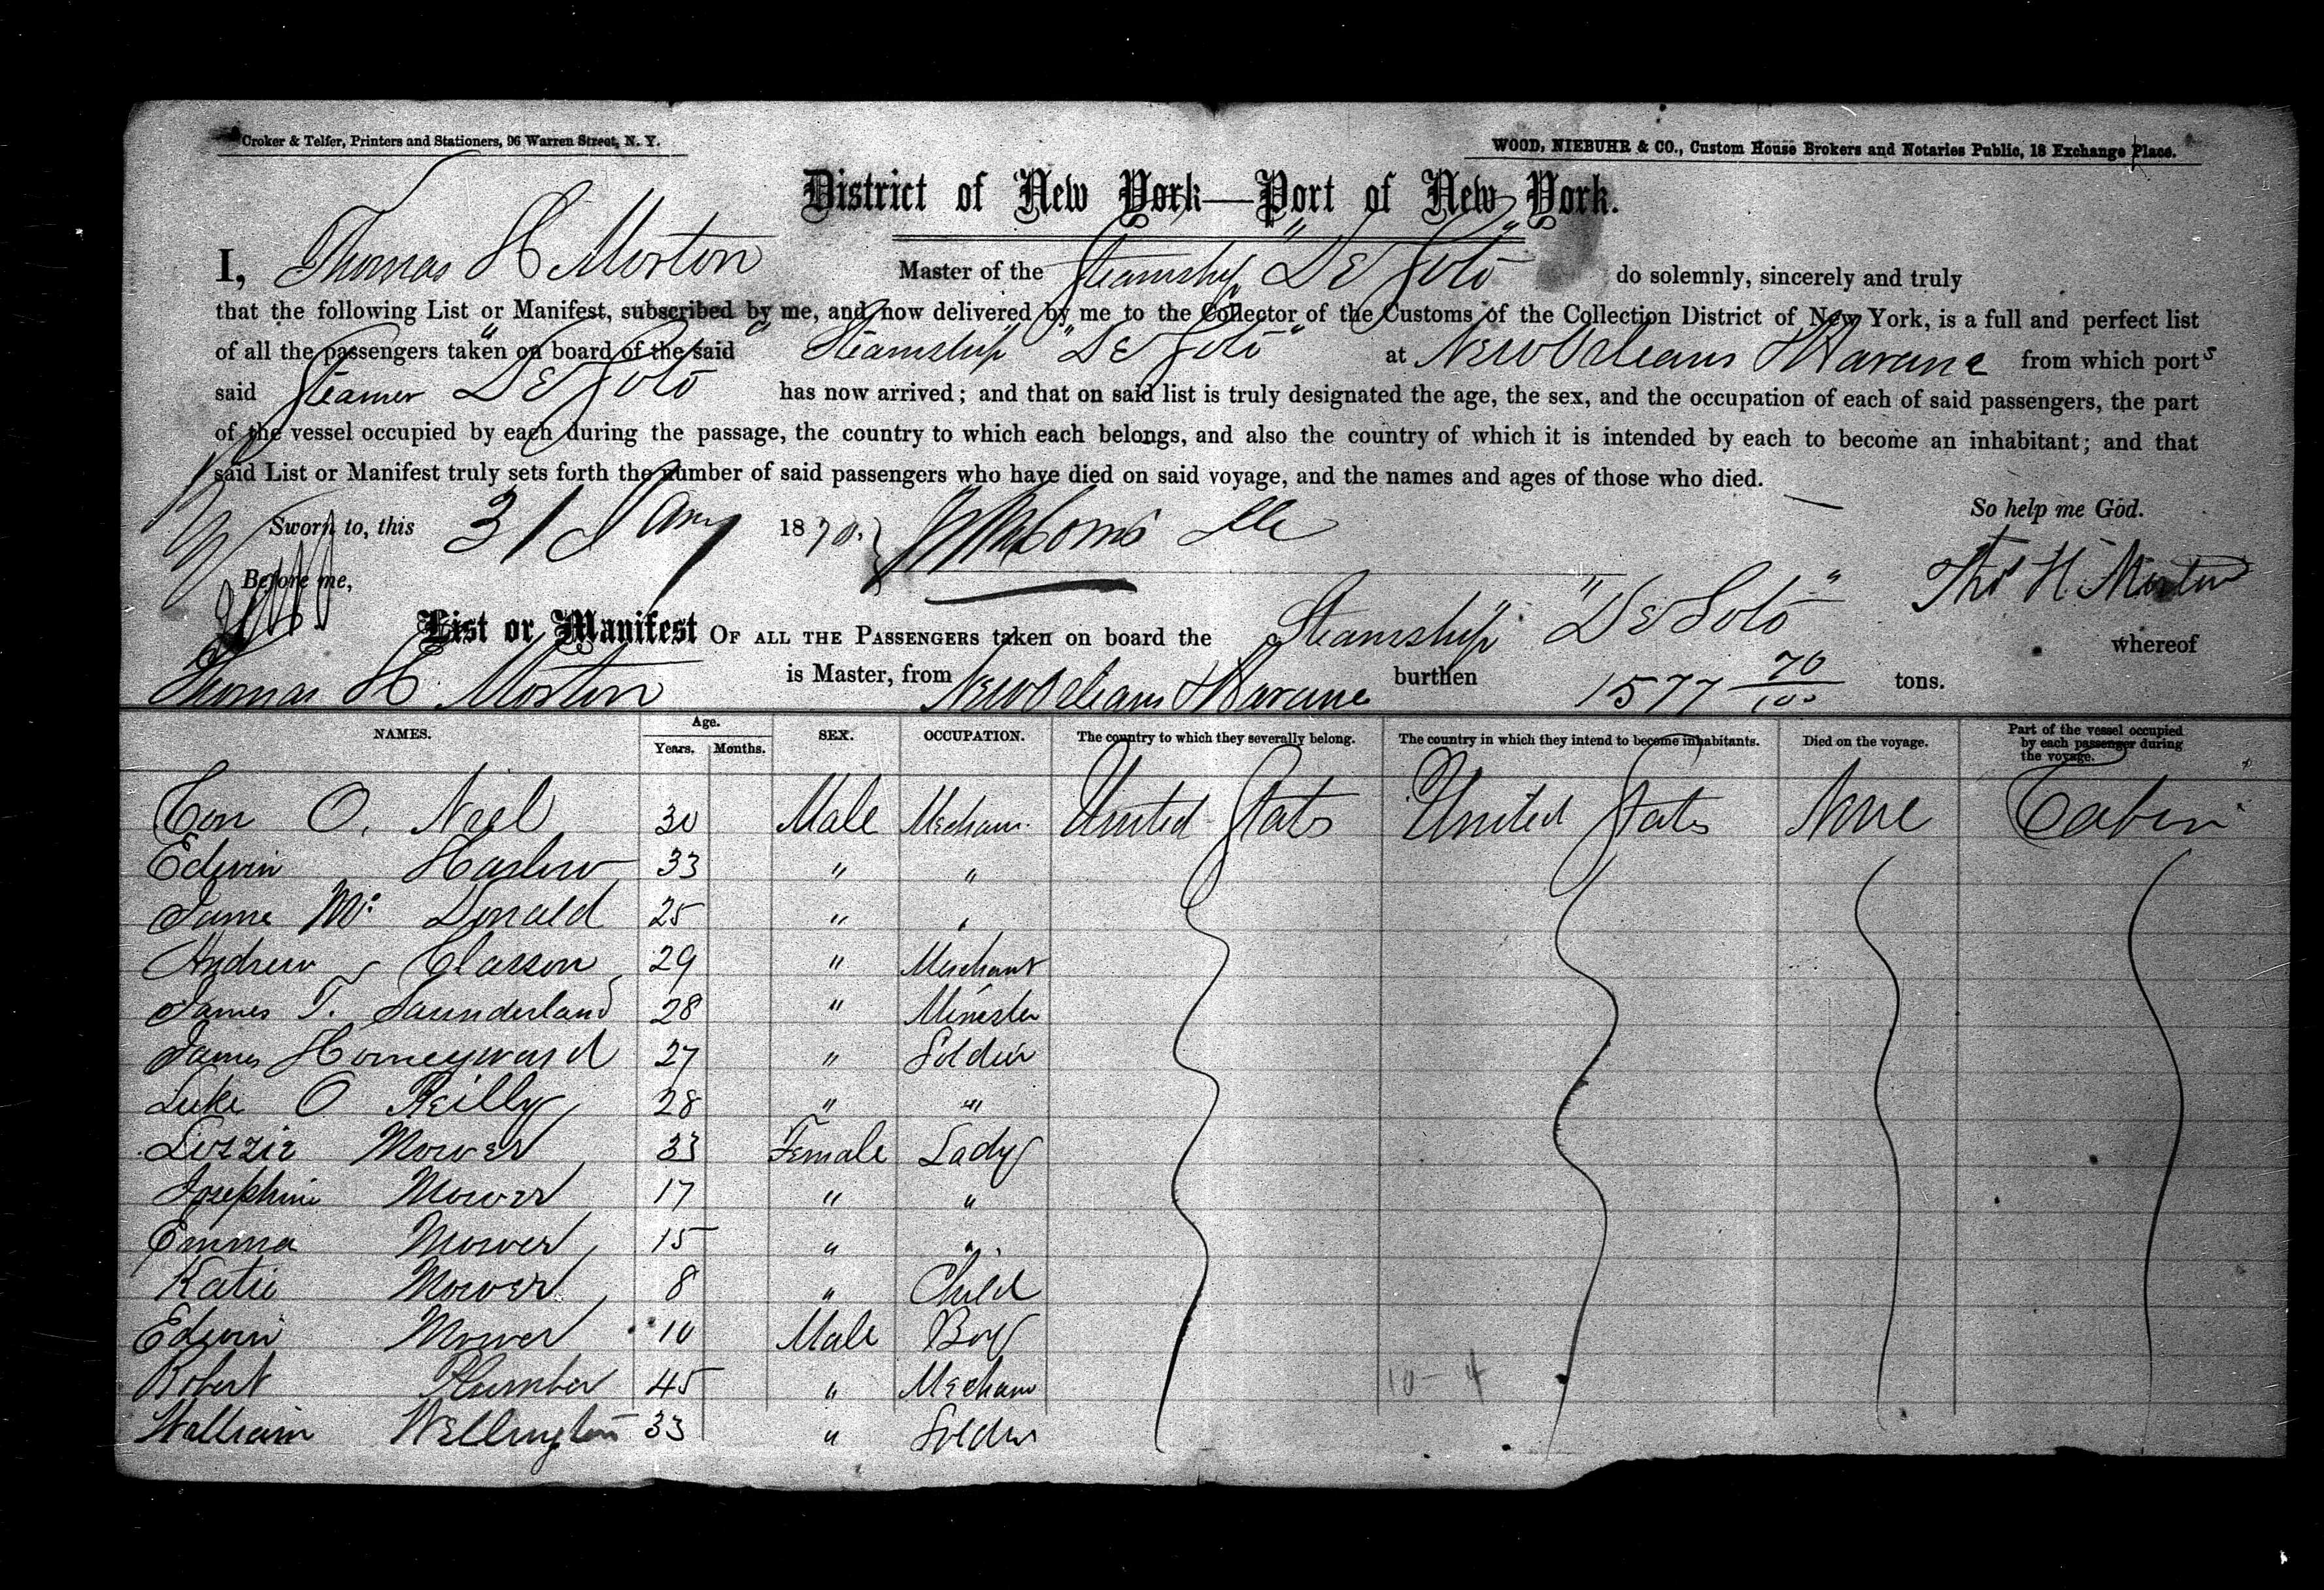 Croker & Telfer, Printers and Stationers, 96 Warren Street, N. Y. WOOD, NIEBUHR & CO., Custom House Brokers and Notaries Public, 18 Exchange Place.
District of New York—Port of New York.
I, Thomas H Morton Master of the Steamship "De Soto" do solemnly, sincerely and truly
that the following List or Manifest, subscribed by me, and now delivered by me to the Collector of the Customs of the Collection District of New York, is a full and perfect list
of all the passengers taken on board of the said Steamship "De Soto" at New Orleans & Havana from which ports
said Steamer "De Soto" has now arrived; and that on said list is truly designated the age, the sex, and the occupation of each of said passengers, the part
of the vessel occupied by each during the passage, the country to which each belongs, and also the country of which it is intended by each to become an inhabitant; and that
said List or Manifest truly sets forth the number of said passengers who have died on said voyage, and the names and ages of those who died.
So help me God.
Sworn to, this 31 Jany 1870.
Before me, Thos H. Morton
List or Manifest OF ALL THE PASSENGERS taken on board the Steamship "De Soto" whereof
Thomas H. Morton is Master, from New Orleans & Havana burthen 1577 70/100 tons.
NAMES. Age. Years. Months. SEX. OCCUPATION. The country to which they severally belong. The country in which they intend to become inhabitants. Died on the voyage. Part of the vessel occupied by each passenger during the voyage.
Con O. Neel 30 Male Mechan. United States United States None Cabin
Edwin Haslow 33 " "
Jame Mc Donald 25 " "
Andrew Classon 29 " Merchant
James T. Saunderland 28 " Minister
James Homeyward 27 " Soldier
Luke O Reilly 28 " "
Lizzie Mower 33 Female Lady
Josephine Mower 17 " "
Emma Mower 15 " "
Katie Mower 8 " Child
Edwin Mower 10 Male Boy
Robert Plumber 45 " Mechan 10-4
William Wellington 33 " Soldier